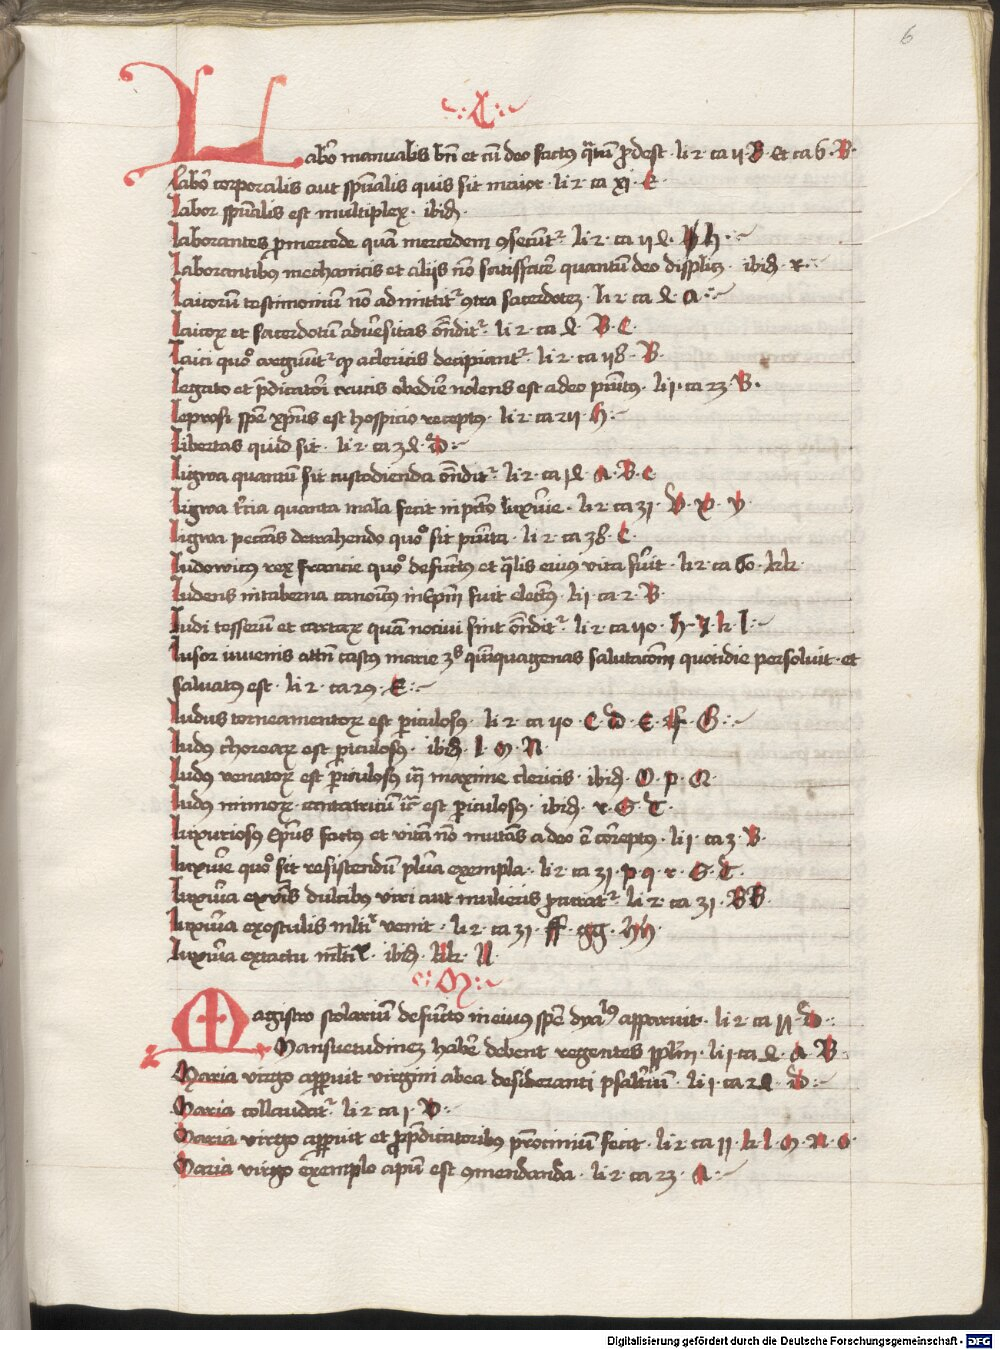 6
·: L :·
Labor manualis bn̄ et cū deo factus q̄ntū ꝓdest · li 2 · ca 11 · B · et ca 6 · B ·
Labor corporalis aut spūalis quis sit maior · li 2 · ca xi · E ·
Labor spūalis est multiplex · ibid̄ ·
Laborantes ꝓ mercede quā mercedem ꝯsecunt᷑ · li 2 · ca · h ·
Laborantibꝰ mechanicis et alijs nō satisfacē quantū deo displic · ibid̄ · r ·
Laicorū testimoniū nō admittit᷑ ꝯtra sacerdotes · li 2 · ca · A ·
Laicoꝝ et sacerdotum adūsitas ōndit᷑ · li 2 · ca · B · C ·
Laici quō arguūt᷑ ꝙ a clericis decipiant᷑ · li 2 · ca 118 · B ·
Legato et p̄dicatori crucis obedire nolens est a deo pūitus · li 1 · ca 23 · B ·
Leprosi spē xp̄us est hospicio receptus · li 2 · ca 211 · h ·
Libertas quid sit · li 2 · ca · D ·
Ligwa quantū sit custodienda ōndit᷑ · li 2 · ca · A · B · C
Ligwa t̄cia quanta mala fecit in pctō luxurie · li 2 · ca 31 · V · X · Y
Ligwa peccās detrahendo quō sit pūita · li 2 · ca 38 · C ·
Ludowicus rex francie quō defūctus et q̄lis eius vita fuit · li 2 · ca 60 · kk ·
Ludens in taberna canonicꝰ in ep̄m fuit electꝰ · li 1 · ca 2 · B ·
Ludi tesserum et cartaꝝ quā nocivi sint ōndit᷑ · li 2 · ca 110 · h · I · k · l ·
Lusor iuvenis attn̄ castus marie quīquagenas salutacōm quotidie persoluit · et
salvatus est · li 2 · ca 29 · E ·
Ludus torneamentoꝝ est ꝑiculosus · li 2 · ca 110 · C · D · E · f · G ·
Ludus choreaꝝ est ꝑiculosus · ibid̄ · l · M · N ·
Ludus venatoꝝ est ꝑiculosus maxime clericis · ibid̄ · O · P · Q ·
Ludus mimoꝝ cantatricū est ꝑiculosus · ibid̄ · r · S · T ·
Luxuriosus ep̄us factus et vitā nō mutās a deo ē correptus · li 1 · ca 3 · B ·
Luxurie quō sit resistendū plura exempla · li 2 · ca 31 · p · q · r · S · T ·
Luxuria ex vbis dulcibus viri aut mulieris ꝓcurat᷑ · li 2 · ca 31 · BB ·
Luxuria ex osculis venit · li 2 · ca 31 · ff · gg · hh ·
Luxuria ex tactu · ibid̄ · kk · ll ·
·: M :·
Magistro scolariū defūcto in eius spē dyabolꝰ apparuit · li 2 · ca 11 · D ·
Mansuetudinez habē debent regentes · li 1 · ca · A · B ·
Maria virgo apparuit virgini ab ea desideranti psaltiū · li 1 · ca · D ·
Maria collaudat᷑ · li 2 · ca 1 · D ·
Maria virgo apparuit et ꝓ p̄dicatoribus fecit · li 2 · ca 11 · k · l · M · N · O ·
Maria virgo exemplo apum est ꝯmendanda · li 2 · ca 23 · A ·
Digitalisierung gefördert durch die Deutsche Forschungsgemeinschaft - DFG